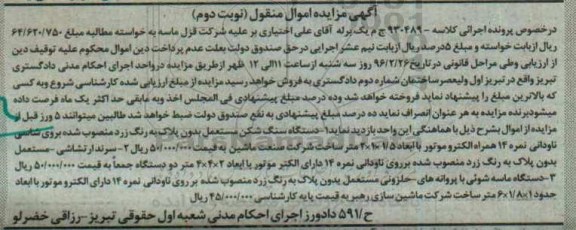 آگهی مزایده اموال منقول (نوبت دوم)
درخصوص پرونده اجرائی کلاسه ۹۳۰۴۸۹ ج م یک برله آقای علی اختیاری بر علیه شرکت قزل ماسه به خواسته مطالبه مبلغ ۶۴/۶۲۰/۷۵۰
ریال ازبابت خواسته و مبلغ ۵درصد ریال ازبابت نیم عشر اجرایی درحق صندوق دولت بعلت عدم پرداخت دین اموال محکوم علیه توقیف دین
از ارزیابی وطی مراحل قانونی در تاریخ ۹۶/۲/۲۶ روز سه شنبه ازساعت ۱۱الی ۱۲ ظهر ازطریق مزایده درواحد اجرای احکام مدنی دادگستری
تبریز واقع در تبریز اول ولیعصر ساختمان شماره دوم دادگستری به فروش خواهد رسید مزایده از مبلغ ارزیابی شده کارشناسی شروع وبه کسی
که بالاترین مبلغ را پیشنهاد نماید فروخته خواهد شد وده درصد مبلغ پیشنهادی فی المجلس اخذ وبه مابقی حد اکثر یک ماه فرصت داده
میشودبرنده مزایده به هر عنوان انصراف نماید ده درصد مبلغ پیشنهادی به نفع صندوق دولت ضبط خواهد شد طالبین میتوانند ۵ ورز قبل از
مزایده از اموال بشرح ذیل با هماهنگی این واحد بازدید نماید۱-دستگاه سنگ شکن مستعمل بدون پلاک به رنگ زرد منصوب شده بروی شاسی
ناودانی نمره ۱۴ همراه الکترو موتور با ابعاد ۱/۵×۱×۴ متر ساخت شرکت صنعت ماشین به قیمت ۵۰/۰۰۰/۰۰۰ ریال ۲- سرند ارتشاشی -مستعمل
بدون پلاک به رنگ زرد منصوب شده برروی ناودانی نمره ۱۴ دارای الکتر موتور با ابعاد ۲×۲×۴ متر دو دستگاه جمعاً به قیمت ۵۰/۰۰۰/۰۰۰ ریال
۳-دستگاه ماسه شوئی با پروانه های -حلزونی مستعمل بدون پلاک به رنگ زرد منصوب شده بر روی ناودانی نمره ۱۴ دارای الکترو موتور با ابعاد
حدود ۱×۱/۸×۶ متر ساخت شرکت ماشین سازی رهبر به قیمت پایه کارشناسی ۴۵/۰۰۰/۰۰۰ ریال
ح/۵۹۱ دادورز اجرای احکام مدنی شعبه اول حقوقی تبریز-رزاقی خضرلو